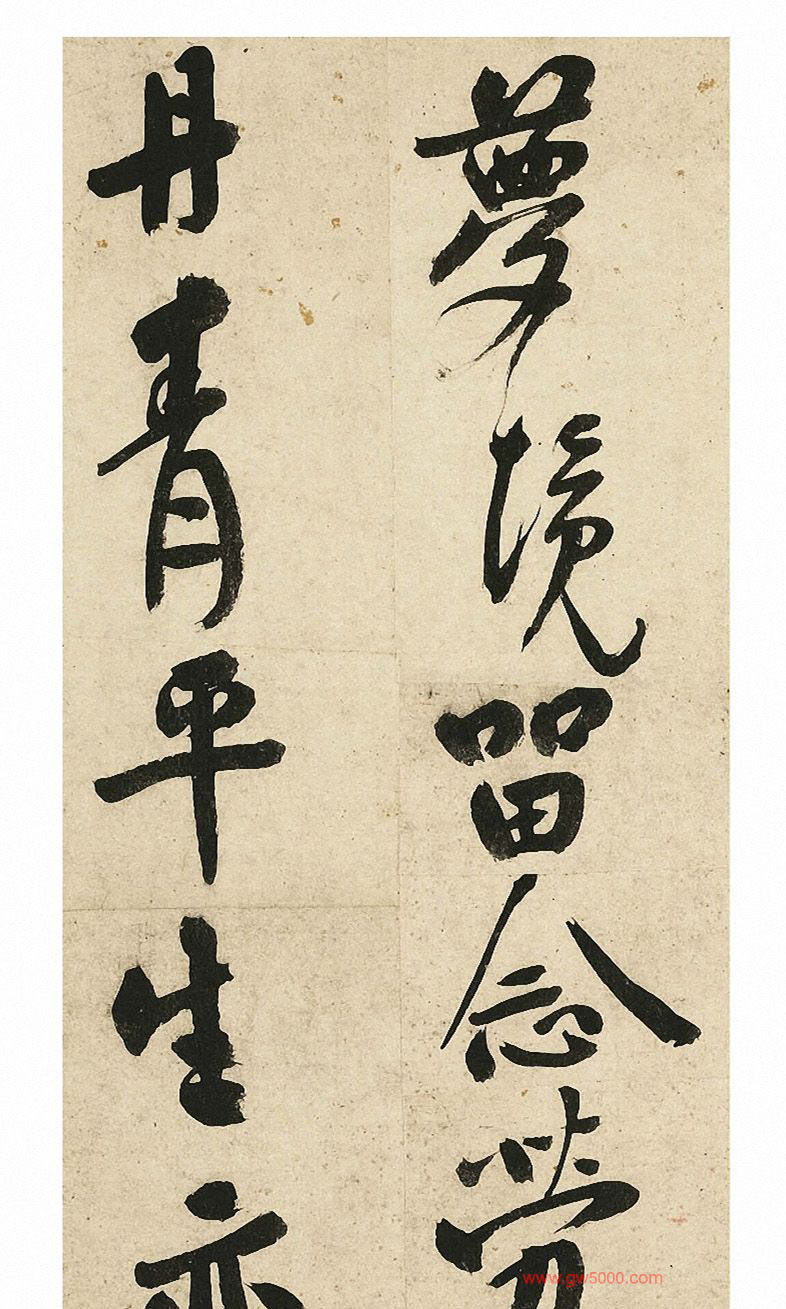 夢境留念勞
丹青平生亦
www.gw5000.com